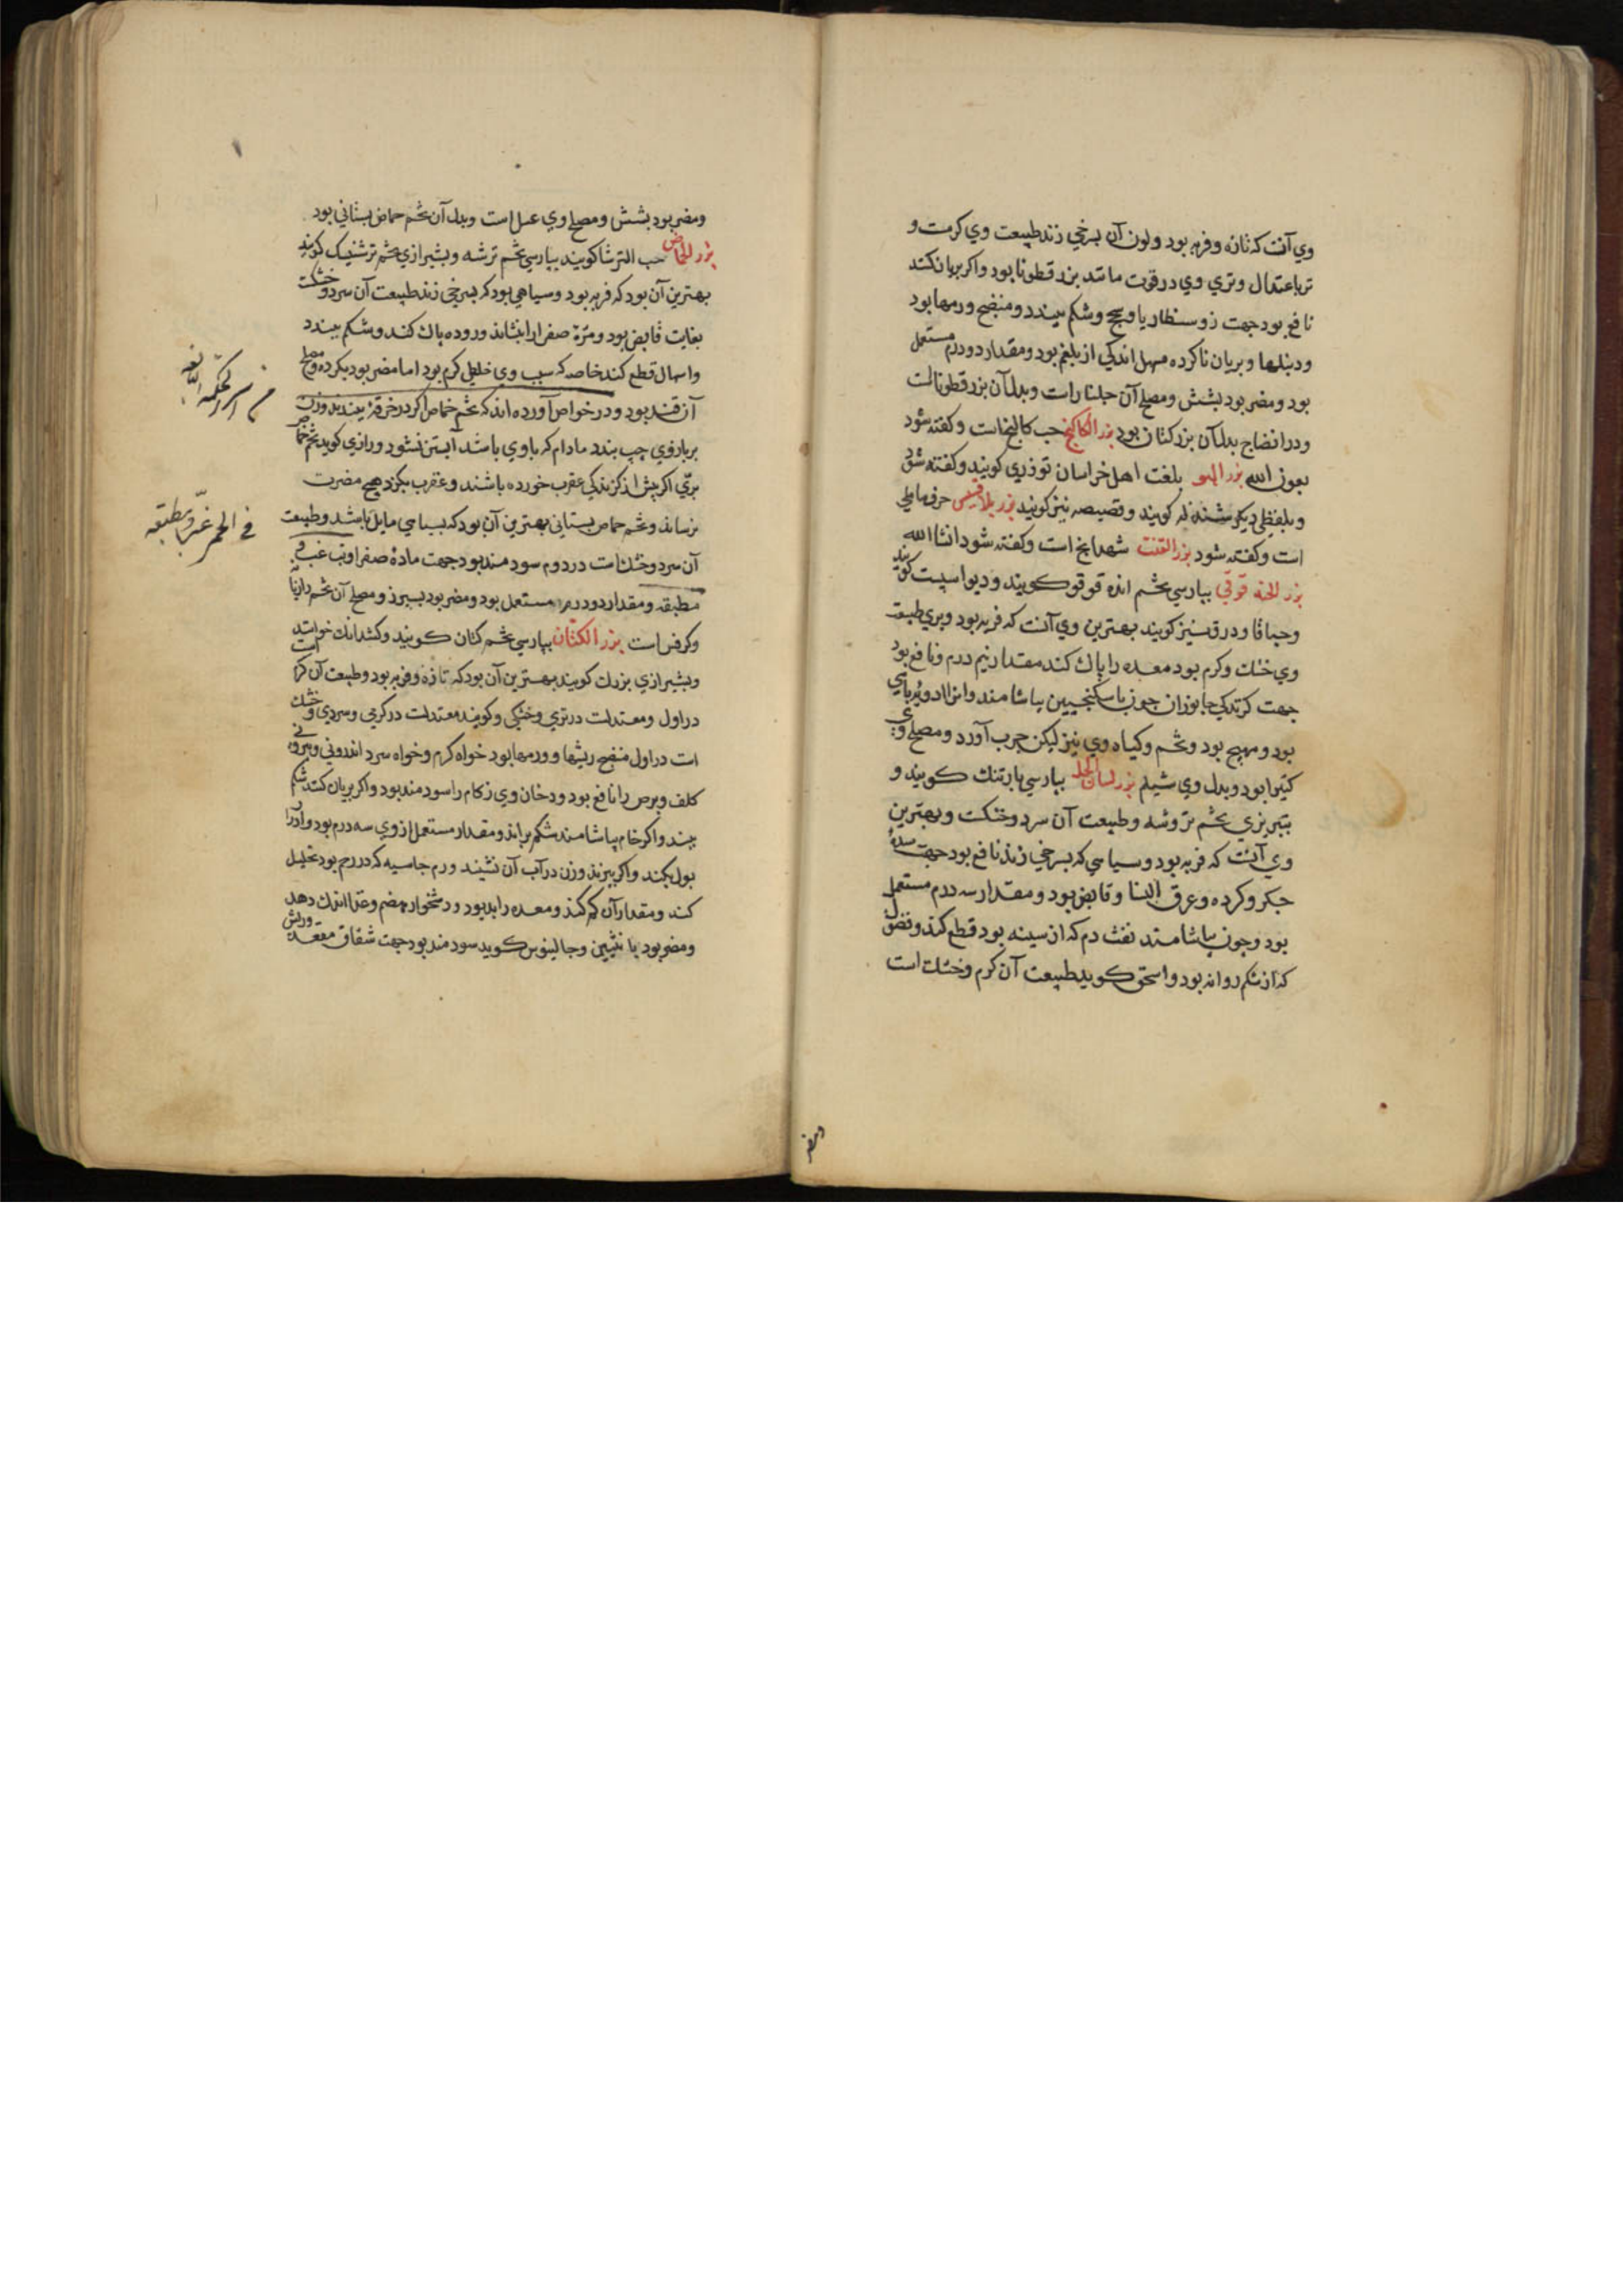 وي آنست که تازه و فربه بود و لون آن بسرخي زند طبيعت وي کرمست و
تر باعتدال و تري وي در قوت مانند بزر قطونا بود و اکر بريان کنند
نافع بود جهت ذوسنطاريا و سحج و شکم ببندد و منضج ورمها بود
و دبيلها و بريان ناکرده مسهل اندکي از بلغم بود و مقدار دو درم مستعمل
بود و مضر بود بشش و مصلح آن جلنارست و بدل آن بزر قطوناست
و در انضاج بدل آن بزر کتان بود بزر الکاکنج حب کاکنج است و کفته شود
بعون الله بزر الهو بلغت اهل خراسان توذري کويند و کفته شود
و بلفظي ديکر شندله کويند و قصيصه نيز کويند بزر بلاقيسي حرف بابلي
است و کفته شود بزر القنب شهدانج است و کفته شود انشا الله
بزر الخه قوقي بپارسي تخم انده قوقو کويند و ديواسپست کويند
و حباقا و درق نيز کويند بهترين وي آنست که فربه بود و بري طبيعت
وي خشک و کرم بود معده را پاک کند مقدار نيم درم و نافع بود
جهت کزندکي جانوران چون با سکنجبين بياشامند و از ادويه ترياقي
بود و مهيج بود و تخم و کياه وي نيز ليکن جرب آورد و مصلح وي
کتيرا بود و بدل وي شيلم بزر لسان الحمل بپارسي بارتنک کويند و
بتبريزي تخم بزوشه و طبيعت آن سرد و خشکست و بهترين
وي آنست که فربه بود و سياهي که بسرخي زند نافع بود جهت سده
جکر و کرده و عرق النسا و قابض بود و مقدار سه درم مستعمل
بود و چون بياشامند نفث دم که از سينه بود قطع کند و فضول
که از شکم روانه بود و اسحق کويد طبيعت آن کرم و خشک است
ومضر
ومضر بود بشش و مصلح وي عسل است و بدل آن تخم حماض بستاني بود
بزر الحماض حب الترشا کويند بپارسي تخم ترشه و بشيرازي تخم ترشنک کويند
بهترين آن بود که فربه بود و سياهي بود که بسرخي زند طبيعت آن سرد و خشکست
بغايت قابض بود و مرة صفرا را بنشاند و روده پاک کند و شکم ببندد
و اسهال قطع کند خاصه که سبب وي خلطي کرم بود اما مضر بود بکرده و مصلح
آن قند بود و در خواص آورده اند که تخم حماض اکر در خرقه بندند و زن
بر بازوي چپ بندد مادام که با وي باشد آبستن نشود و رازي کويد تخم حماض
بري اکر پيش از کزندکي عقرب خورده باشند و عقرب بکزد هيچ مضرت
نرساند و تخم حماض بستاني بهترين آن بود که بسياهي مايل باشد و طبيعت
آن سرد و خشک است در دوم سود مند بود جهت مادة صفرا و تب غب و
مطبقه و مقدار دو درم مستعمل بود و مضر بود بسپرز و مصلح آن تخم رازيانه
و کرفس است بزر الکتان بپارسي تخم کتان کويند و کشدانک خوانند
و بشيرازي بزرک کويند بهترين آن بود که تازه و فربه بود و طبيعت آن کرم است
در اول و معتدلست در تري و خشکي و کويند معتدلست در کرمي و سردي و خشک
است در اول منضج ريشها و ورمها بود خواه کرم و خواه سرد اندروني و بيروني
کلف و برص را نافع بود و دخان وي زکام را سود مند بود و اکر بريان کنند شکم
ببندد و اکر خام بياشامند شکم براند و مقدار مستعمل از وي سه درم بود و ادرار
بول بکند و اکر بپزند و زن در آب آن نشيند ورم جاسيه که در رحم بود تحليل
کند و مقدار آن کم کند و معده را بد بود و دشخوار هضم و غذا اندک دهد
و مضر بود با نثيين و جالينوس کويد سود مند بود جهت شقاق مقعد و ريش